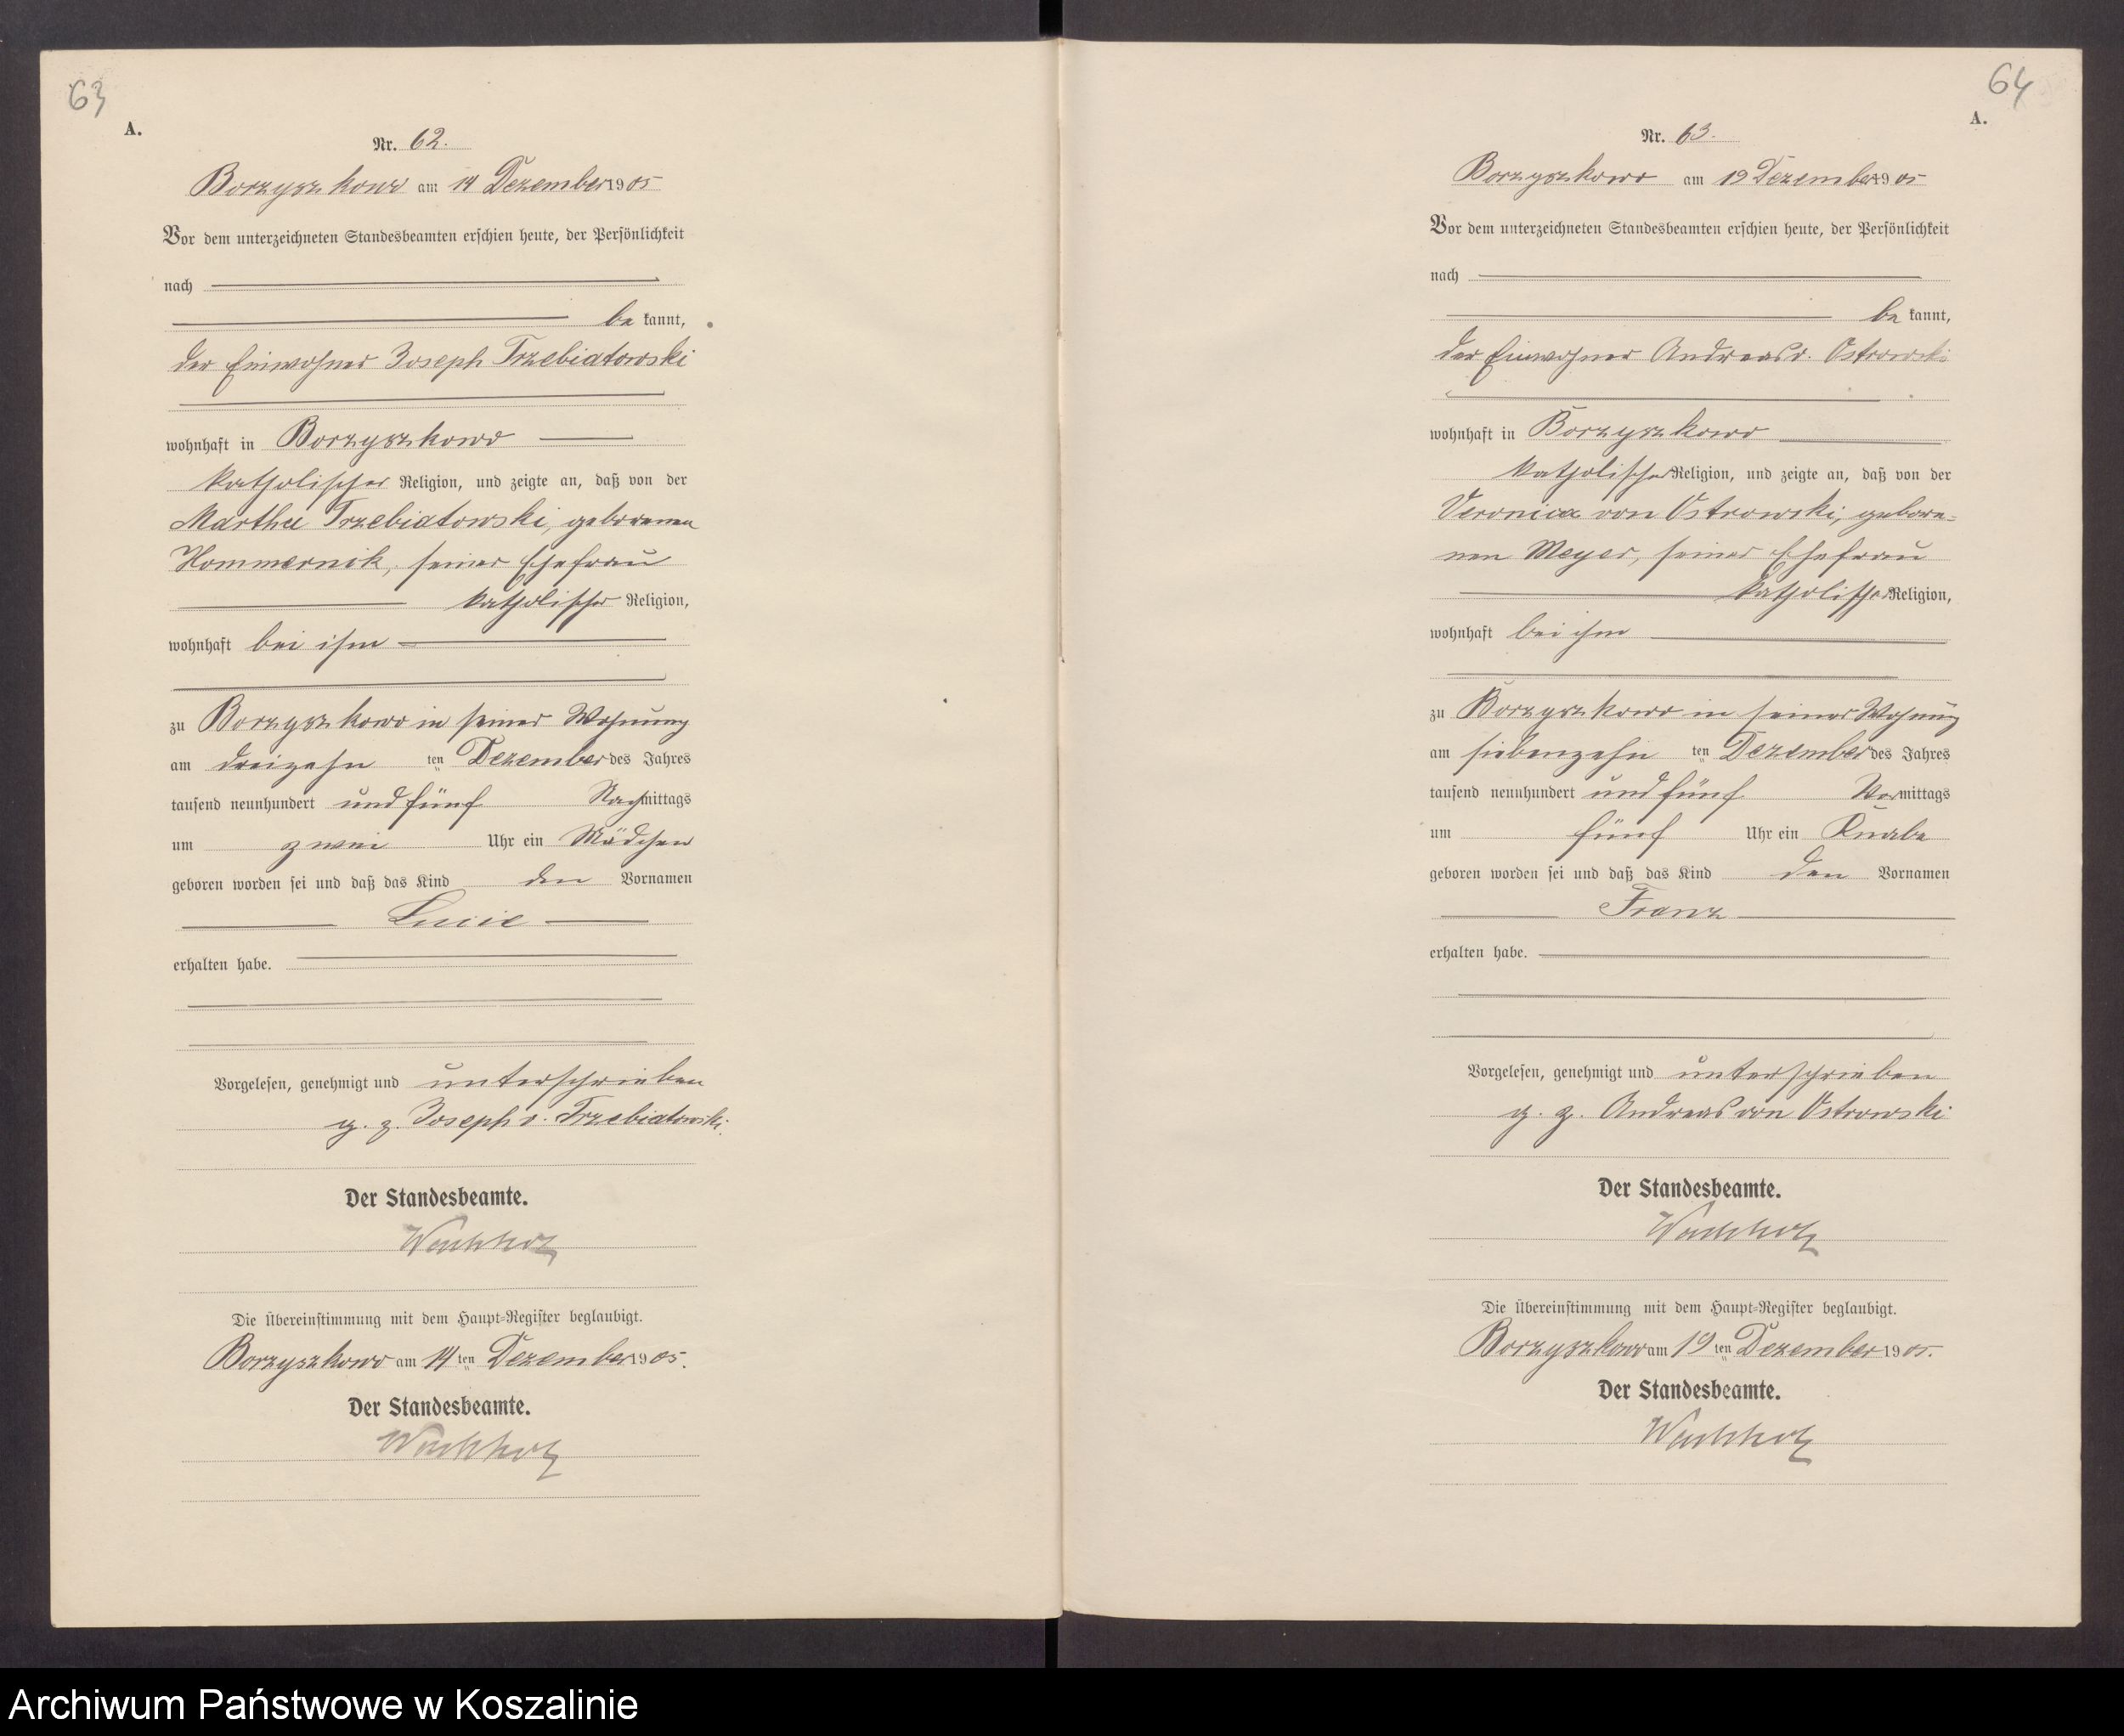 63
A.
Nr. 62.
Borzyszkowo am 14 Dezember 1905
Vor dem unterzeichneten Standesbeamten erschien heute, der Persönlichkeit
nach
be kannt,
der Einwohner Joseph Trzebiatowski
wohnhaft in Borzyszkowo
katholischer Religion, und zeigte an, daß von der
Martha Trzebiatowski, geborenen
seiner Ehefrau
katholischer Religion,
wohnhaft bei ihm
zu Borzyszkowo in seiner Wohnung
am dreizehn ten Dezember des Jahres
tausend neunhundert und fünf Nachmittags
um zwei Uhr ein Mädchen
geboren worden sei und daß das Kind den Vornamen
Lucie
erhalten habe.
Vorgelesen, genehmigt und unterschrieben
g. z. Joseph v. Trzebiatowski.
Der Standesbeamte.
Wachholz
Die Übereinstimmung mit dem Haupt-Register beglaubigt.
Borzyszkowo am 14 ten Dezember 1905.
Der Standesbeamte.
Wachholz
64
A.
Nr. 63.
Borzyszkowo am 19 Dezember 1905
Vor dem unterzeichneten Standesbeamten erschien heute, der Persönlichkeit
nach
be kannt,
der Einwohner Andreas v. Ostrowski
wohnhaft in Borzyszkowo
katholischer Religion, und zeigte an, daß von der
Veronica von Ostrowski, gebore-
nen Meyer, seiner Ehefrau
katholischer Religion,
wohnhaft bei ihm
zu Borzyszkowo in seiner Wohnung
am siebenzehn ten Dezember des Jahres
tausend neunhundert und fünf Vormittags
um fünf Uhr ein Knabe
geboren worden sei und daß das Kind den Vornamen
Franz
erhalten habe.
Vorgelesen, genehmigt und unterschrieben
g. z. Andreas von Ostrowski
Der Standesbeamte.
Wachholz
Die Übereinstimmung mit dem Haupt-Register beglaubigt.
Borzyszkowo am 19 ten Dezember 1905.
Der Standesbeamte.
Wachholz
Archiwum Państwowe w Koszalinie